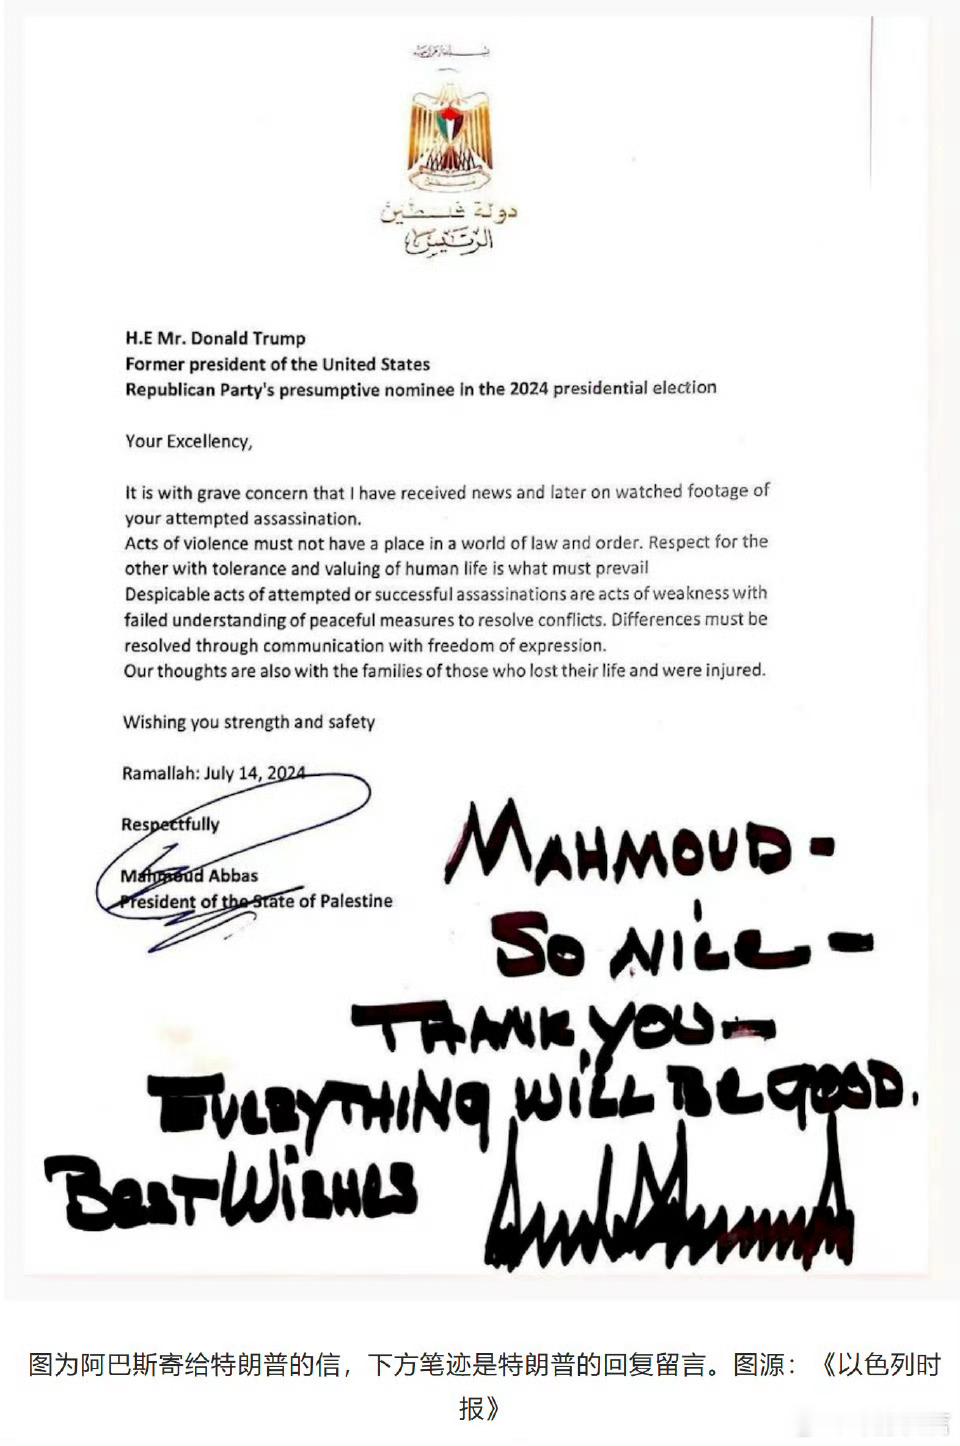 دولة فلسطين
الرئيس
H.E Mr. Donald Trump
Former president of the United States
Republican Party's presumptive nominee in the 2024 presidential election
Your Excellency,
It is with grave concern that I have received news and later on watched footage of
your attempted assassination.
Acts of violence must not have a place in a world of law and order. Respect for the
other with tolerance and valuing of human life is what must prevail
Despicable acts of attempted or successful assassinations are acts of weakness with
failed understanding of peaceful measures to resolve conflicts. Differences must be
resolved through communication with freedom of expression.
Our thoughts are also with the families of those who lost their life and were injured.
Wishing you strength and safety
Ramallah: July 14, 2024
Respectfully
Mahmoud Abbas
President of the State of Palestine
MAHMOUD -
SO NICE -
THANK YOU -
EVERYTHING WILL BE GOOD.
BEST WISHES
图为阿巴斯寄给特朗普的信，下方笔迹是特朗普的回复留言。图源：《以色列时
报》